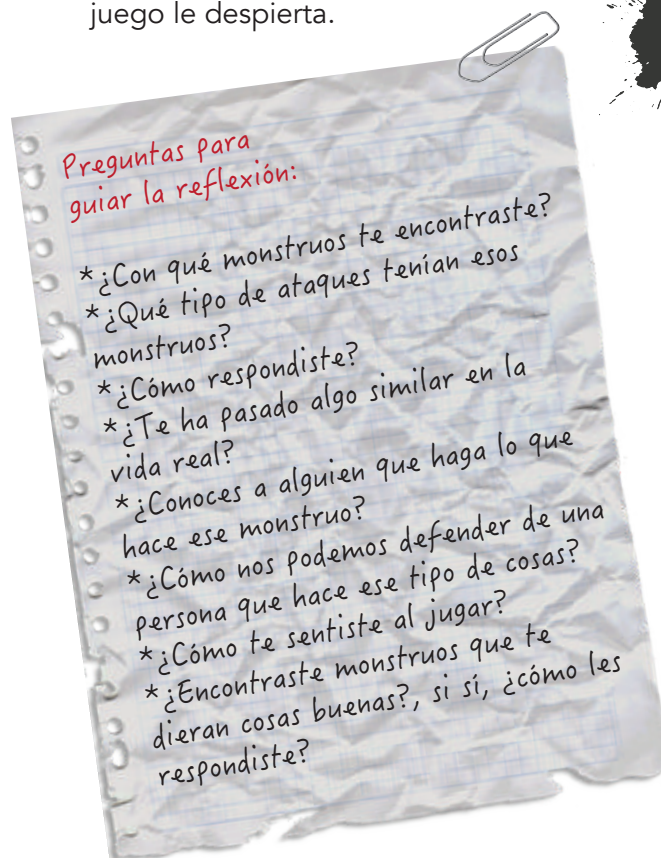 juego le despierta.
Preguntas para
guiar la reflexión:
*¿Con qué monstruos te encontraste?
*¿Qué tipo de ataques tenían esos
monstruos?
*¿Cómo respondiste?
*¿Te ha pasado algo similar en la
vida real?
*¿Conoces a alguien que haga lo que
hace ese monstruo?
*¿Cómo nos podemos defender de una
persona que hace ese tipo de cosas?
*¿Cómo te sentiste al jugar?
*¿Encontraste monstruos que te
dieran cosas buenas?, si sí, ¿cómo les
respondiste?